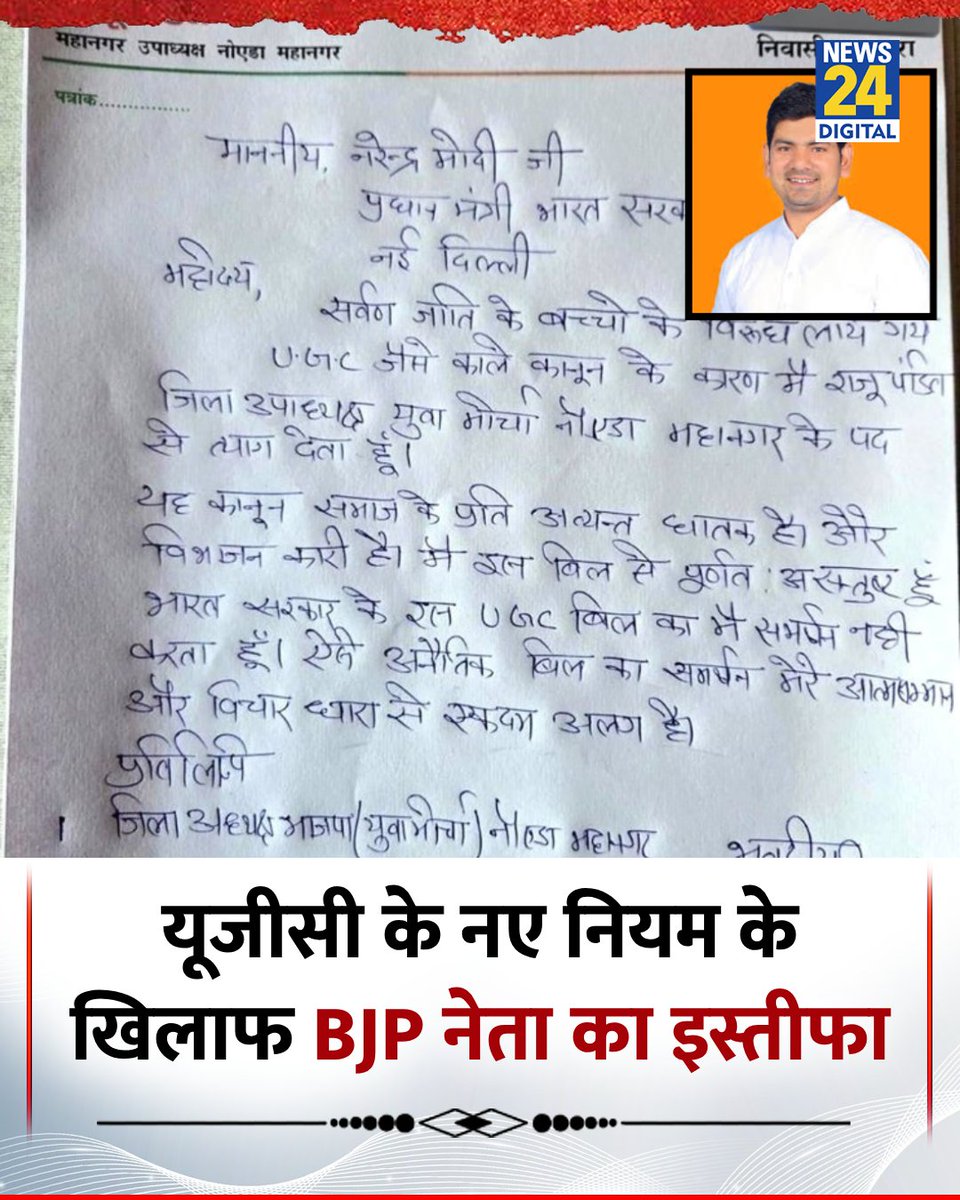 महानगर उपाध्यक्ष नोएडा महानगर
निवासी
रा
NEWS
24
DIGITAL
पत्रांक................
माननीय, नरेन्द्र मोदी जी
प्रधान मंत्री भारत सरक
नई दिल्ली
महोदय,
सर्वण जाति के बच्चो के विरूध लाये गये
U.G.C जैसे काले कानून के कारण मै राजू पंडित
जिला उपाध्यक्ष युवा मोर्चा नौएडा महानगर के पद
से त्याग देता हूँ।
यह कानून समाज के प्रति अत्यन्त घातक है। और
विभाजन कारी है। मै इस बिल से पूर्णत: असन्तुष्ट हूँ
भारत सरकार के इस UGC बिल का मै समर्थन नही
करता हूँ। ऐसे अनैतिक बिल का समर्थन मेरे आत्मसम्मान
और विचार धारा से एकदम अलग है।
प्रतिलिपि
1 जिला अध्यक्ष भाजपा (युवा मोर्चा) नौएडा महानगर
यूजीसी के नए नियम के
खिलाफ BJP नेता का इस्तीफा